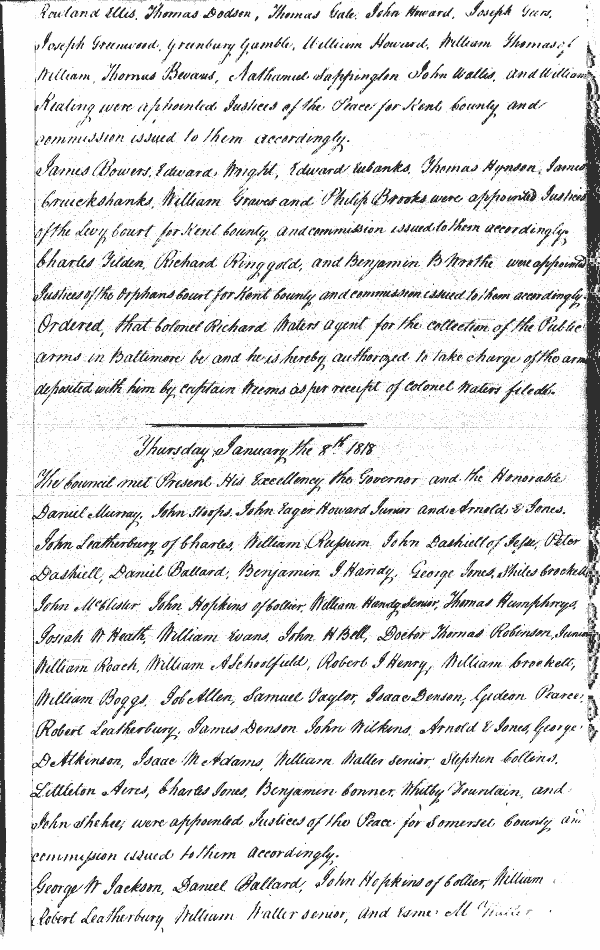 Rowland Ellis, Thomas Dodson, Thomas Gale, John Howard, Joseph Geers,
Joseph Greenwood, Greenbury Gamble, William Howard, William Thomas of
William, Thomas Bevans, Nathaniel Sappington John Wallis, and William
Keating were appointed Justices of the Peace for Kent County and
commission issued to them accordingly.
James Bowers, Edward Wright, Edward Eubanks, Thomas Hynson, James
Cruickshanks, William Graves and Philip Brooks were appointed Justices
of the Levy Court for Kent County and commission issued to them accordingly.
Charles Tilden, Richard Ringgold, and Benjamin B Wrothe were appointed
Justices of the Orphans Court for Kent County and commission issued to them accordingly.
Ordered, that Colonel Richard Waters agent for the collection of the Public
arms in Baltimore be and he is hereby authorized to take charge of the arms
deposited with him by Captain Weems as per receipt of Colonel Waters filed.
Thursday January the 8th 1818
The Council met Present His Excellency the Governor and the Honorable
Daniel Murray, John Stoops, John Eager Howard Junior and Arnold E Jones.
John Leatherbury of Charles, William Russum John Dashiell of Jesse, Peter
Dashiell, Daniel Ballard, Benjamin J Handy, George Jones, Stiles Crockett,
John McClister John Hopkins of Collier, William Handy Senior, Thomas Humphrys,
Josiah W Heath, William Evans, John H Bell, Doctor Thomas Robinson, Junior
William Roach, William A Schoolfield, Robert J Henry, William Crockett,
William Boggs, Job Allen, Samuel Taylor, Isaac Denson, Gideon Pearce,
Robert Leatherbury, James Denson John Wilkins, Arnold E Jones, George
D Atkinson, Isaac M Adams, William Waller senior, Stephen Collins,
Littleton Aires, Charles Jones, Benjamin Conner, Whitby Fountain, and
John Shehee, were appointed Justices of the Peace for Somerset County and
commission issued to them accordingly.
George W Jackson, Daniel Ballard, John Hopkins of Collier, William
Robert Leatherbury William Waller senior, and Esme M Waller